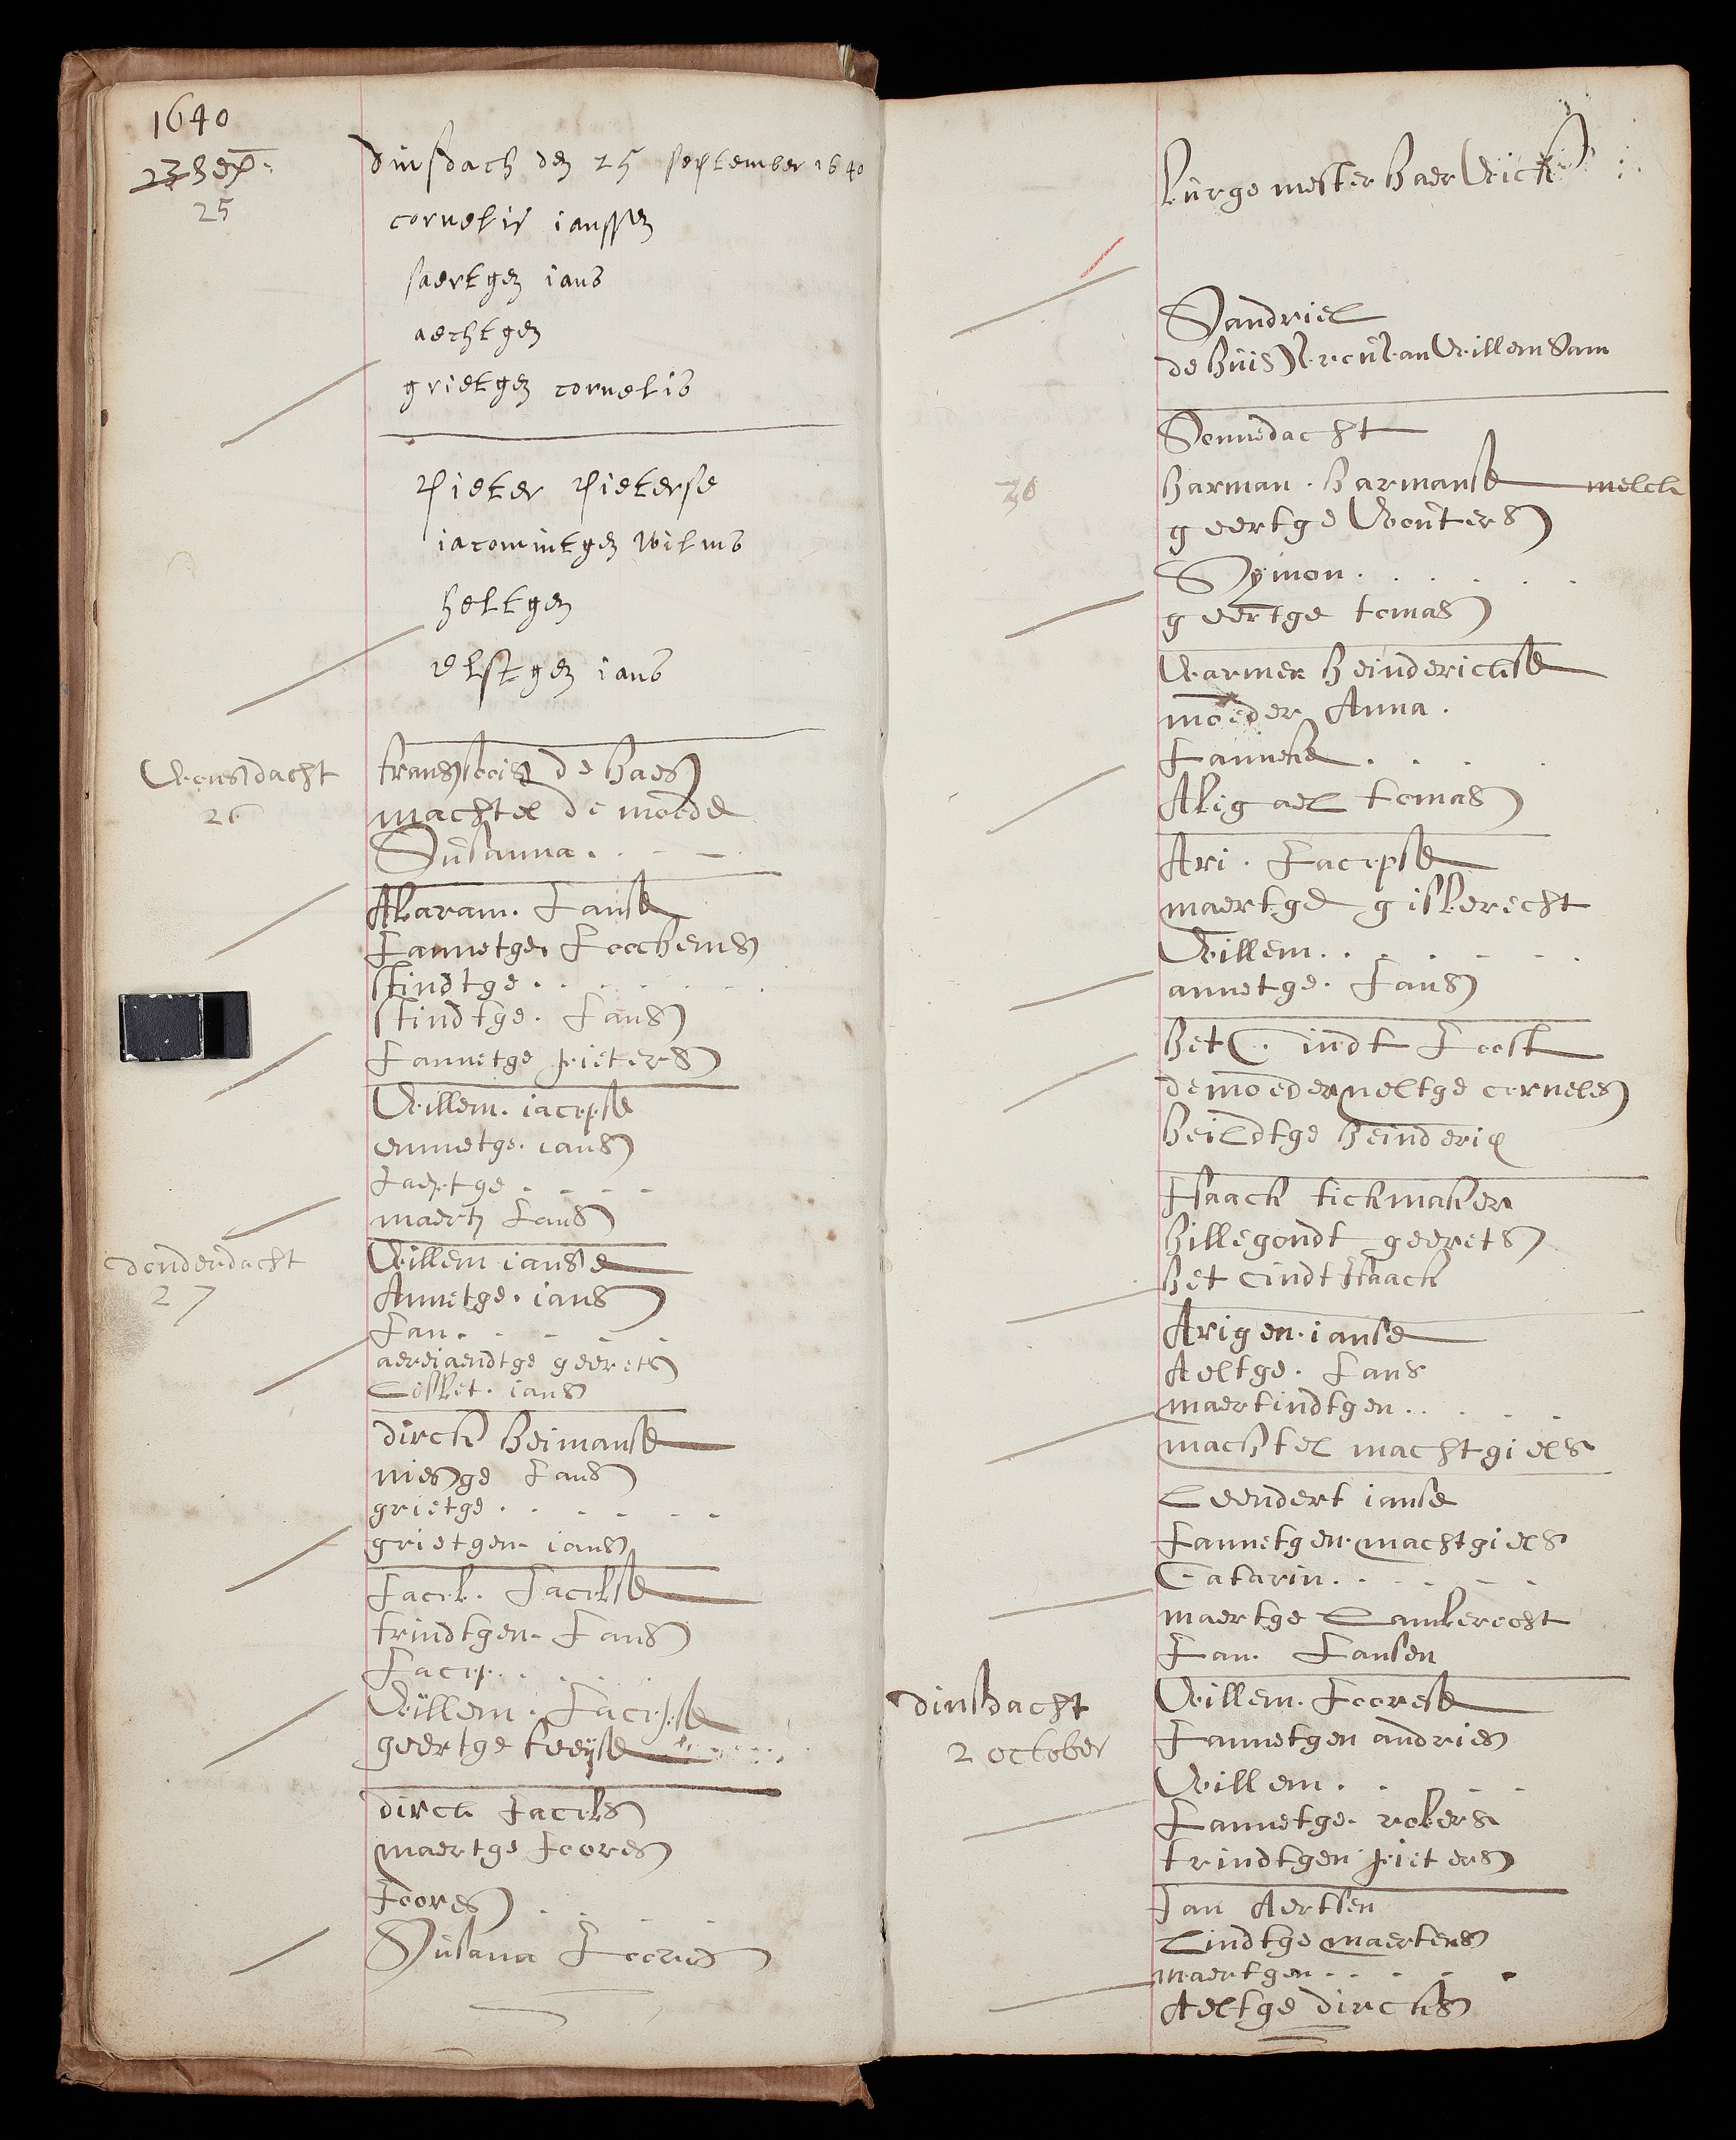 1640
23 Sep.
25
dinsdach den 25 september 1640
cornelis janssen
saertgen jans
aechtgen
grietgen cornelis
Pieter Pieterse
jacomintgen wilms
heltgen
elstgen jans
Woensdacht
26
fransoois de haes
machtel de moede
Susanna
Abaram. Janse
Jannetge Joochems
stindtge
stindtge. Jans
Jannetge pieters
Willem. jacopse
ennetge. jans
Jaeptge
maerty Jans
donderdacht
27
Willem janse
Annetge. jans
Jan
aereiaendtge geerets
Lisbet. jans
dirck heimanse
niesge Jans
grietge
grietgen jans
Jacob. Jacobse
trindtgen Jans
Jacop
Willem. Jacopse
geertge teeyse
dirck Jacobs
maertge Joores
Joores
Susana Joories
burgemester haerWick
Sandriel
de huis vrou van Willem Sam
Sonnedacht
30
harman. harmanse melck
geertge Wouters
Symon
geertge tomas
Warmer heinderickse
moeder Anna
Janneke
Abigael tomas
Ari. Jacopse
maertge gisberecht
Willem
annetge. Jans
het C. indt Joost
de moeder neltge corneles
heildtge heinderix
Isaack tickmaker
hillegondt geerets
het Cindt Isaack
Arigen. janse
Aeltge. Jans
maertindtgen
machtel machtgiels
Leendert janse
Jannetgen machtgiels
Catarin
maertge Lamberecht
Jan Jansen
dinsdacht
2 october
Willem. Joorese
Jannetgen andries
Willem
Jannetge. robers
trindtgen pieters
Jan Aertsen
Lindtge maertens
maertgen
Aeltge dircks